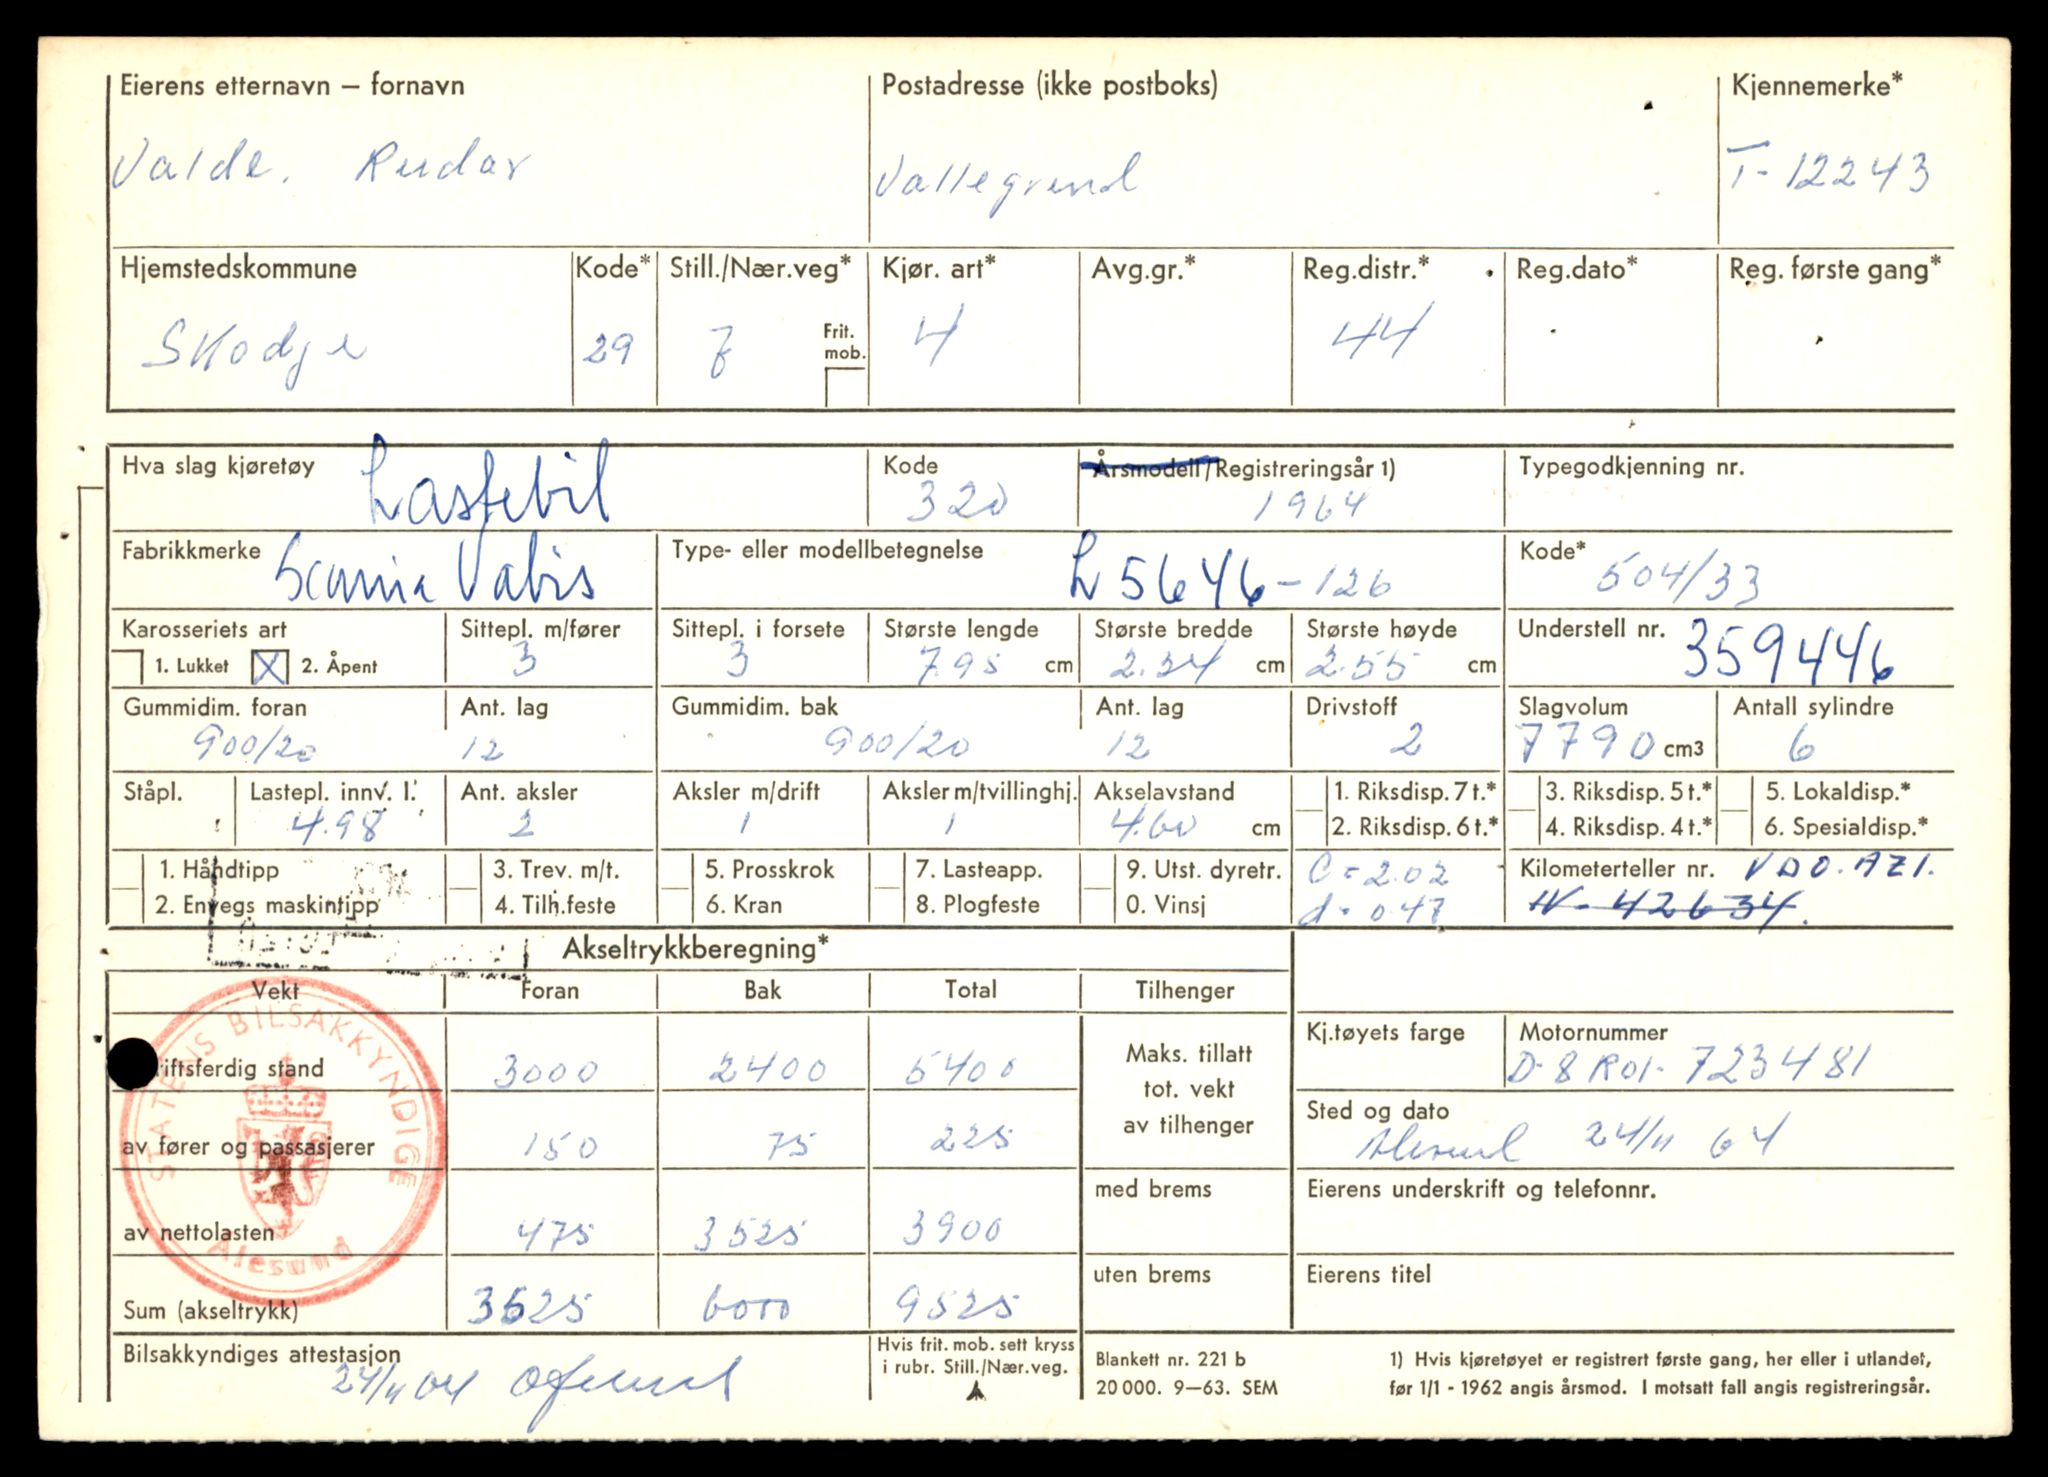 Eierens etternavn — fornavn
Postadresse (ikke postboks)
Kjennemerke*
Valde. Reidar
Vallegrend
T-12243
Hjemstedskommune
Kode*
Still./Nær.veg*
Kjør. art*
Avg.gr.*
Reg.distr.*
Reg.dato*
Reg. første gang*
Skodje
29
7
Frit. mob.
4
44
Hva slag kjøretøy
Lastebil
Kode
320
Årsmodell/Registreringsår 1)
1964
Typegodkjenning nr.
Fabrikkmerke
Scania Vabis
Type- eller modellbetegnelse
L 5646-126
Kode*
504/33
Karosseriets art
1. Lukket
X 2. Åpent
Sittepl. m/fører
3
Sittepl. i forsete
3
Største lengde
7.95 cm
Største bredde
2.34 cm
Største høyde
2.55 cm
Understell nr.
359446
Gummidim. foran
900/20
Ant. lag
12
Gummidim. bak
900/20
Ant. lag
12
Drivstoff
2
Slagvolum
7790 cm3
Antall sylindre
6
Ståpl.
Lastepl. innv. l.
4.98
Ant. aksler
2
Aksler m/drift
1
Aksler m/tvillinghj.
1
Akselavstand
4.60 cm
1. Riksdisp. 7 t.*
2. Riksdisp. 6 t.*
3. Riksdisp. 5 t.*
4. Riksdisp. 4 t.*
5. Lokaldisp.*
6. Spesialdisp.*
1. Håndtipp
2. Envegs maskintipp
3. Trev. m/t.
4. Tilh.feste
5. Prosskrok
6. Kran
7. Lasteapp.
8. Plogfeste
9. Utst. dyretr.
0. Vinsj
C = 2.02
d = 0.47
Kilometerteller nr. VDO. AZ1.
N - 42634.
Akseltrykkberegning*
Vekt
Foran
Bak
Total
Tilhenger
driftsferdig stand
3000
2400
5400
Maks. tillatt tot. vekt av tilhenger
Kj.tøyets farge
Motornummer
D-8 R01- 723481
av fører og passasjerer
150
75
225
Sted og dato
Ålesund 24/11 64
av nettolasten
475
3525
3900
med brems
Eierens underskrift og telefonnr.
Sum (akseltrykk)
3625
6000
9525
uten brems
Eierens titel
STATENS BILSAKKYNDIGE
Ålesund
Bilsakkyndiges attestasjon
24/11 64
Hvis frit. mob. sett kryss
i rubr. Still./Nær.veg.
Blankett nr. 221 b
20 000. 9—63. SEM
1) Hvis kjøretøyet er registrert første gang, her eller i utlandet,
før 1/1 - 1962 angis årsmod. I motsatt fall angis registreringsår.